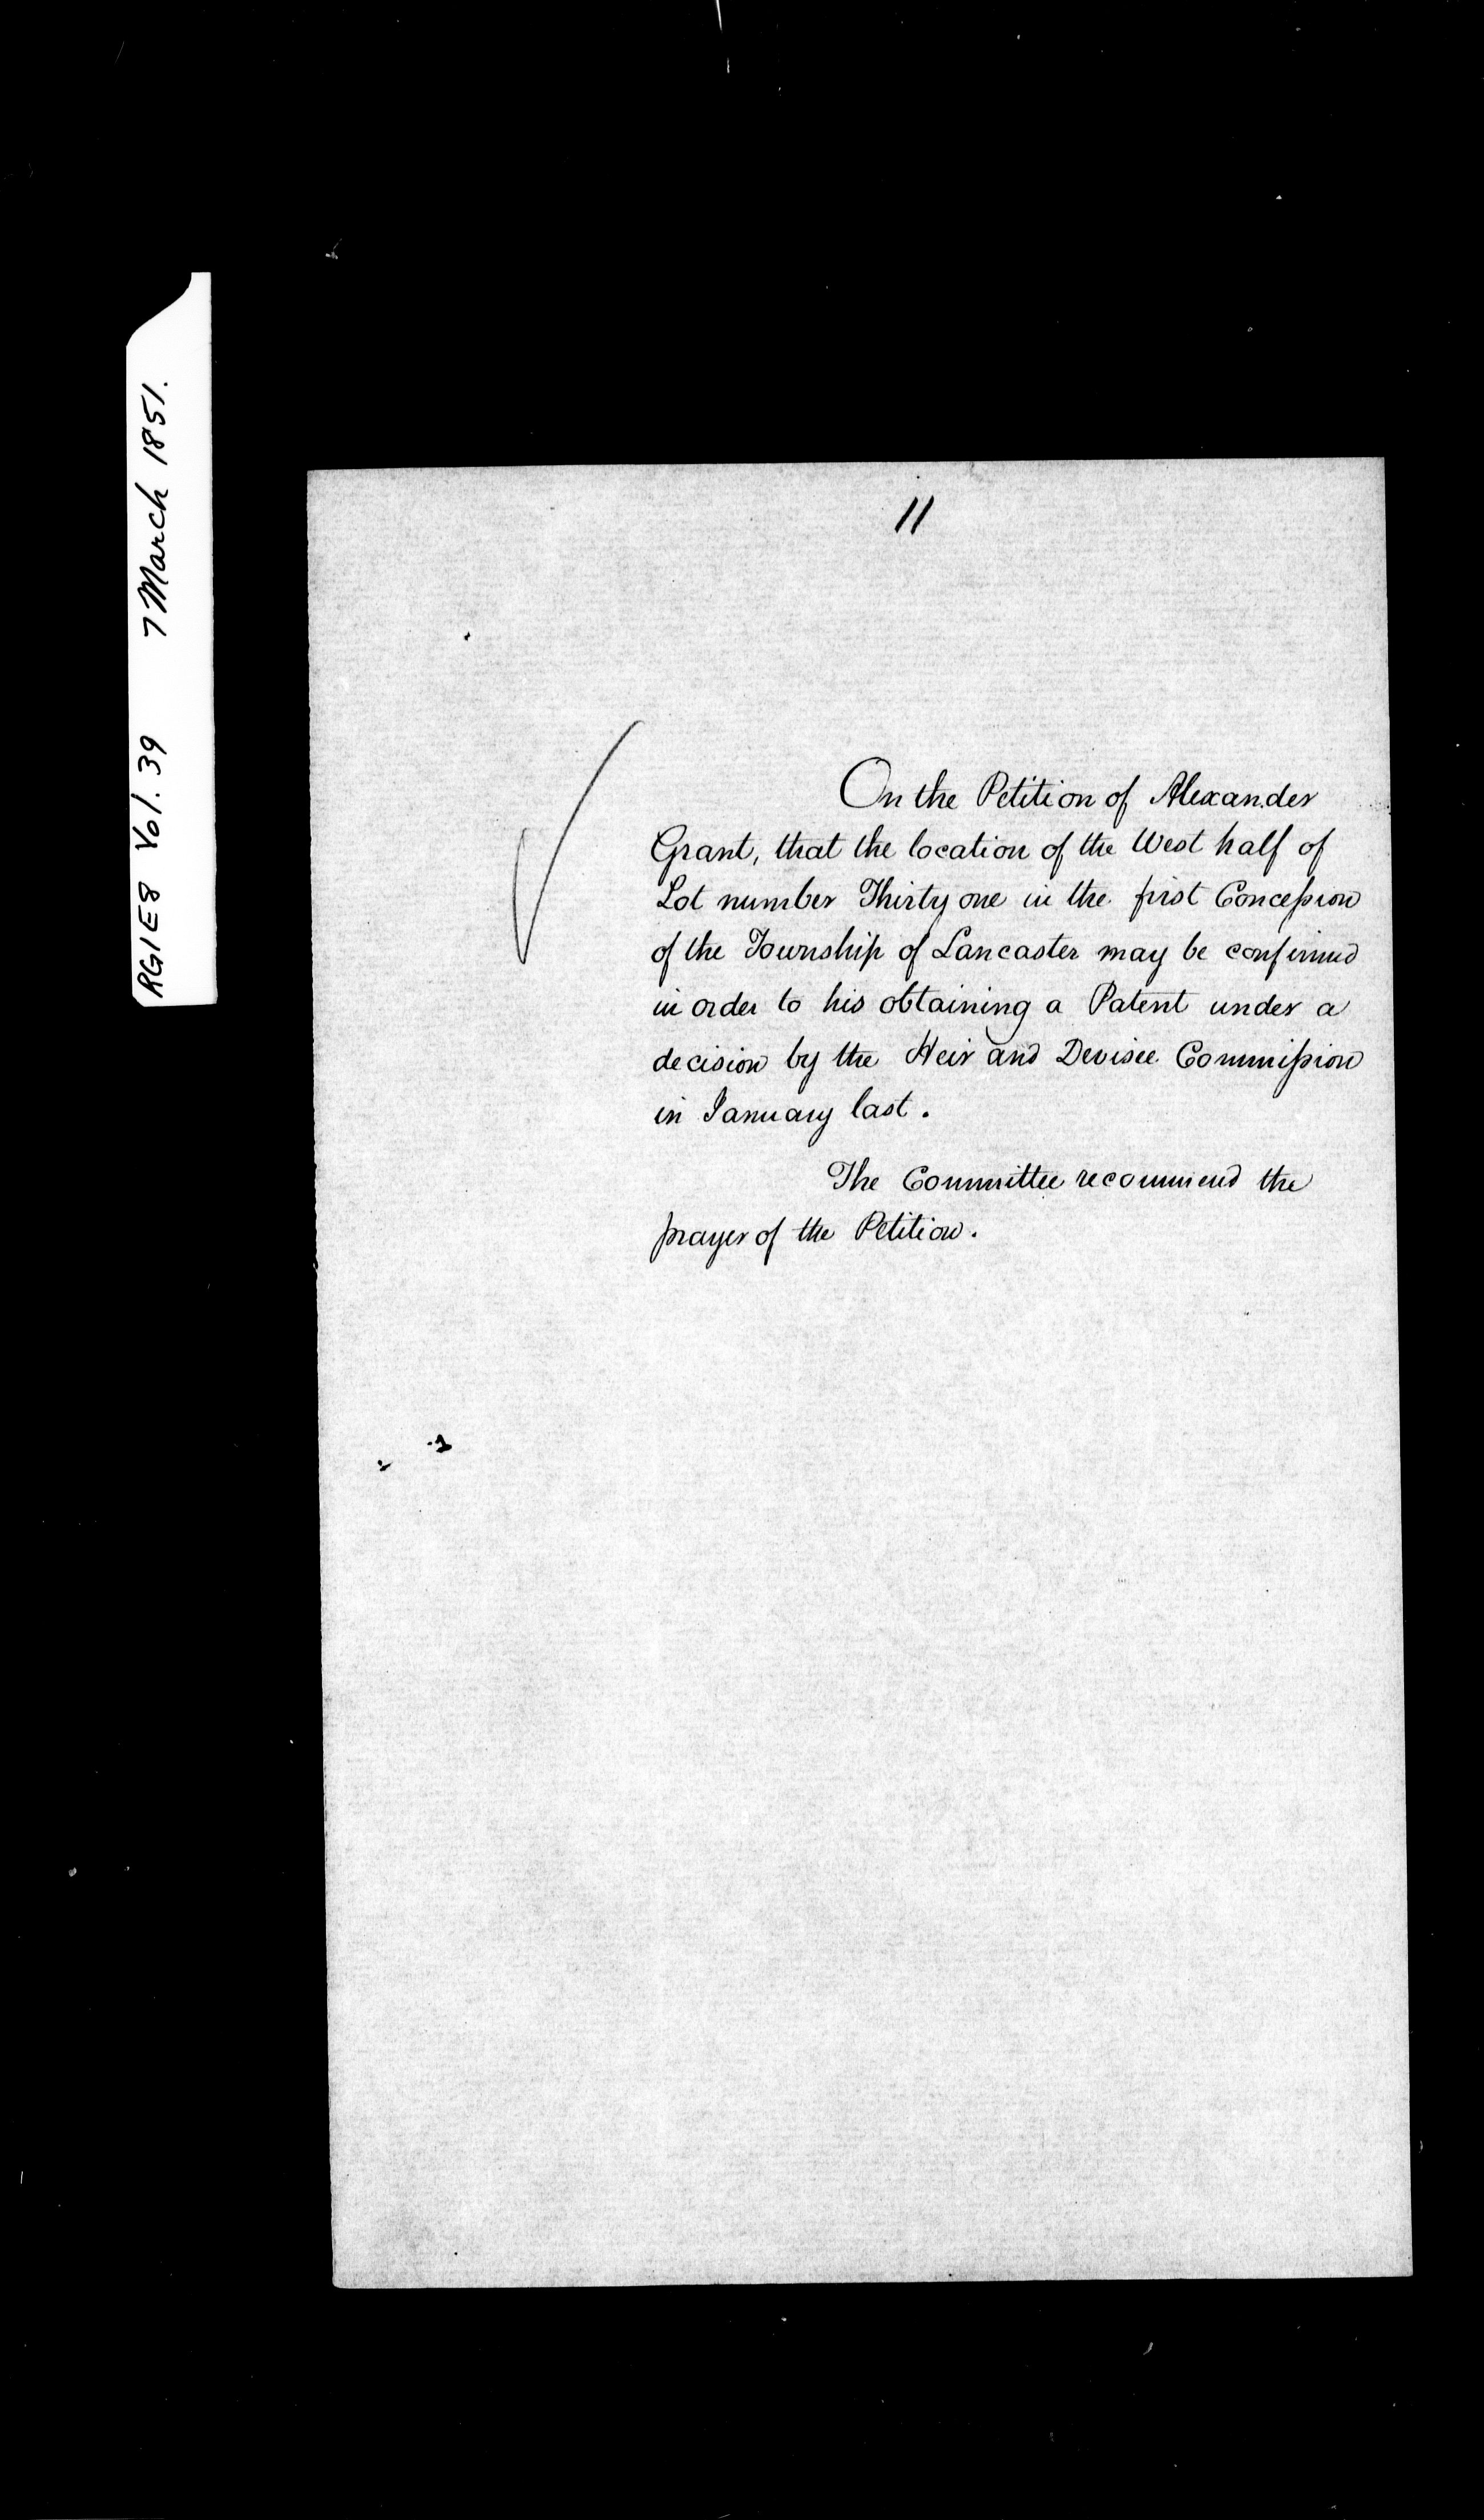 RG1E8 Vol. 39 7 March 1851.
11
On the Petition of Alexander
Grant, that the location of the West half of
Lot number Thirty one in the first Concession
of the Township of Lancaster may be confirmed
in order to his obtaining a Patent under a
decision by the Heir and Devisee Commission
in January last.
The Committee recommend the
prayer of the Petition.